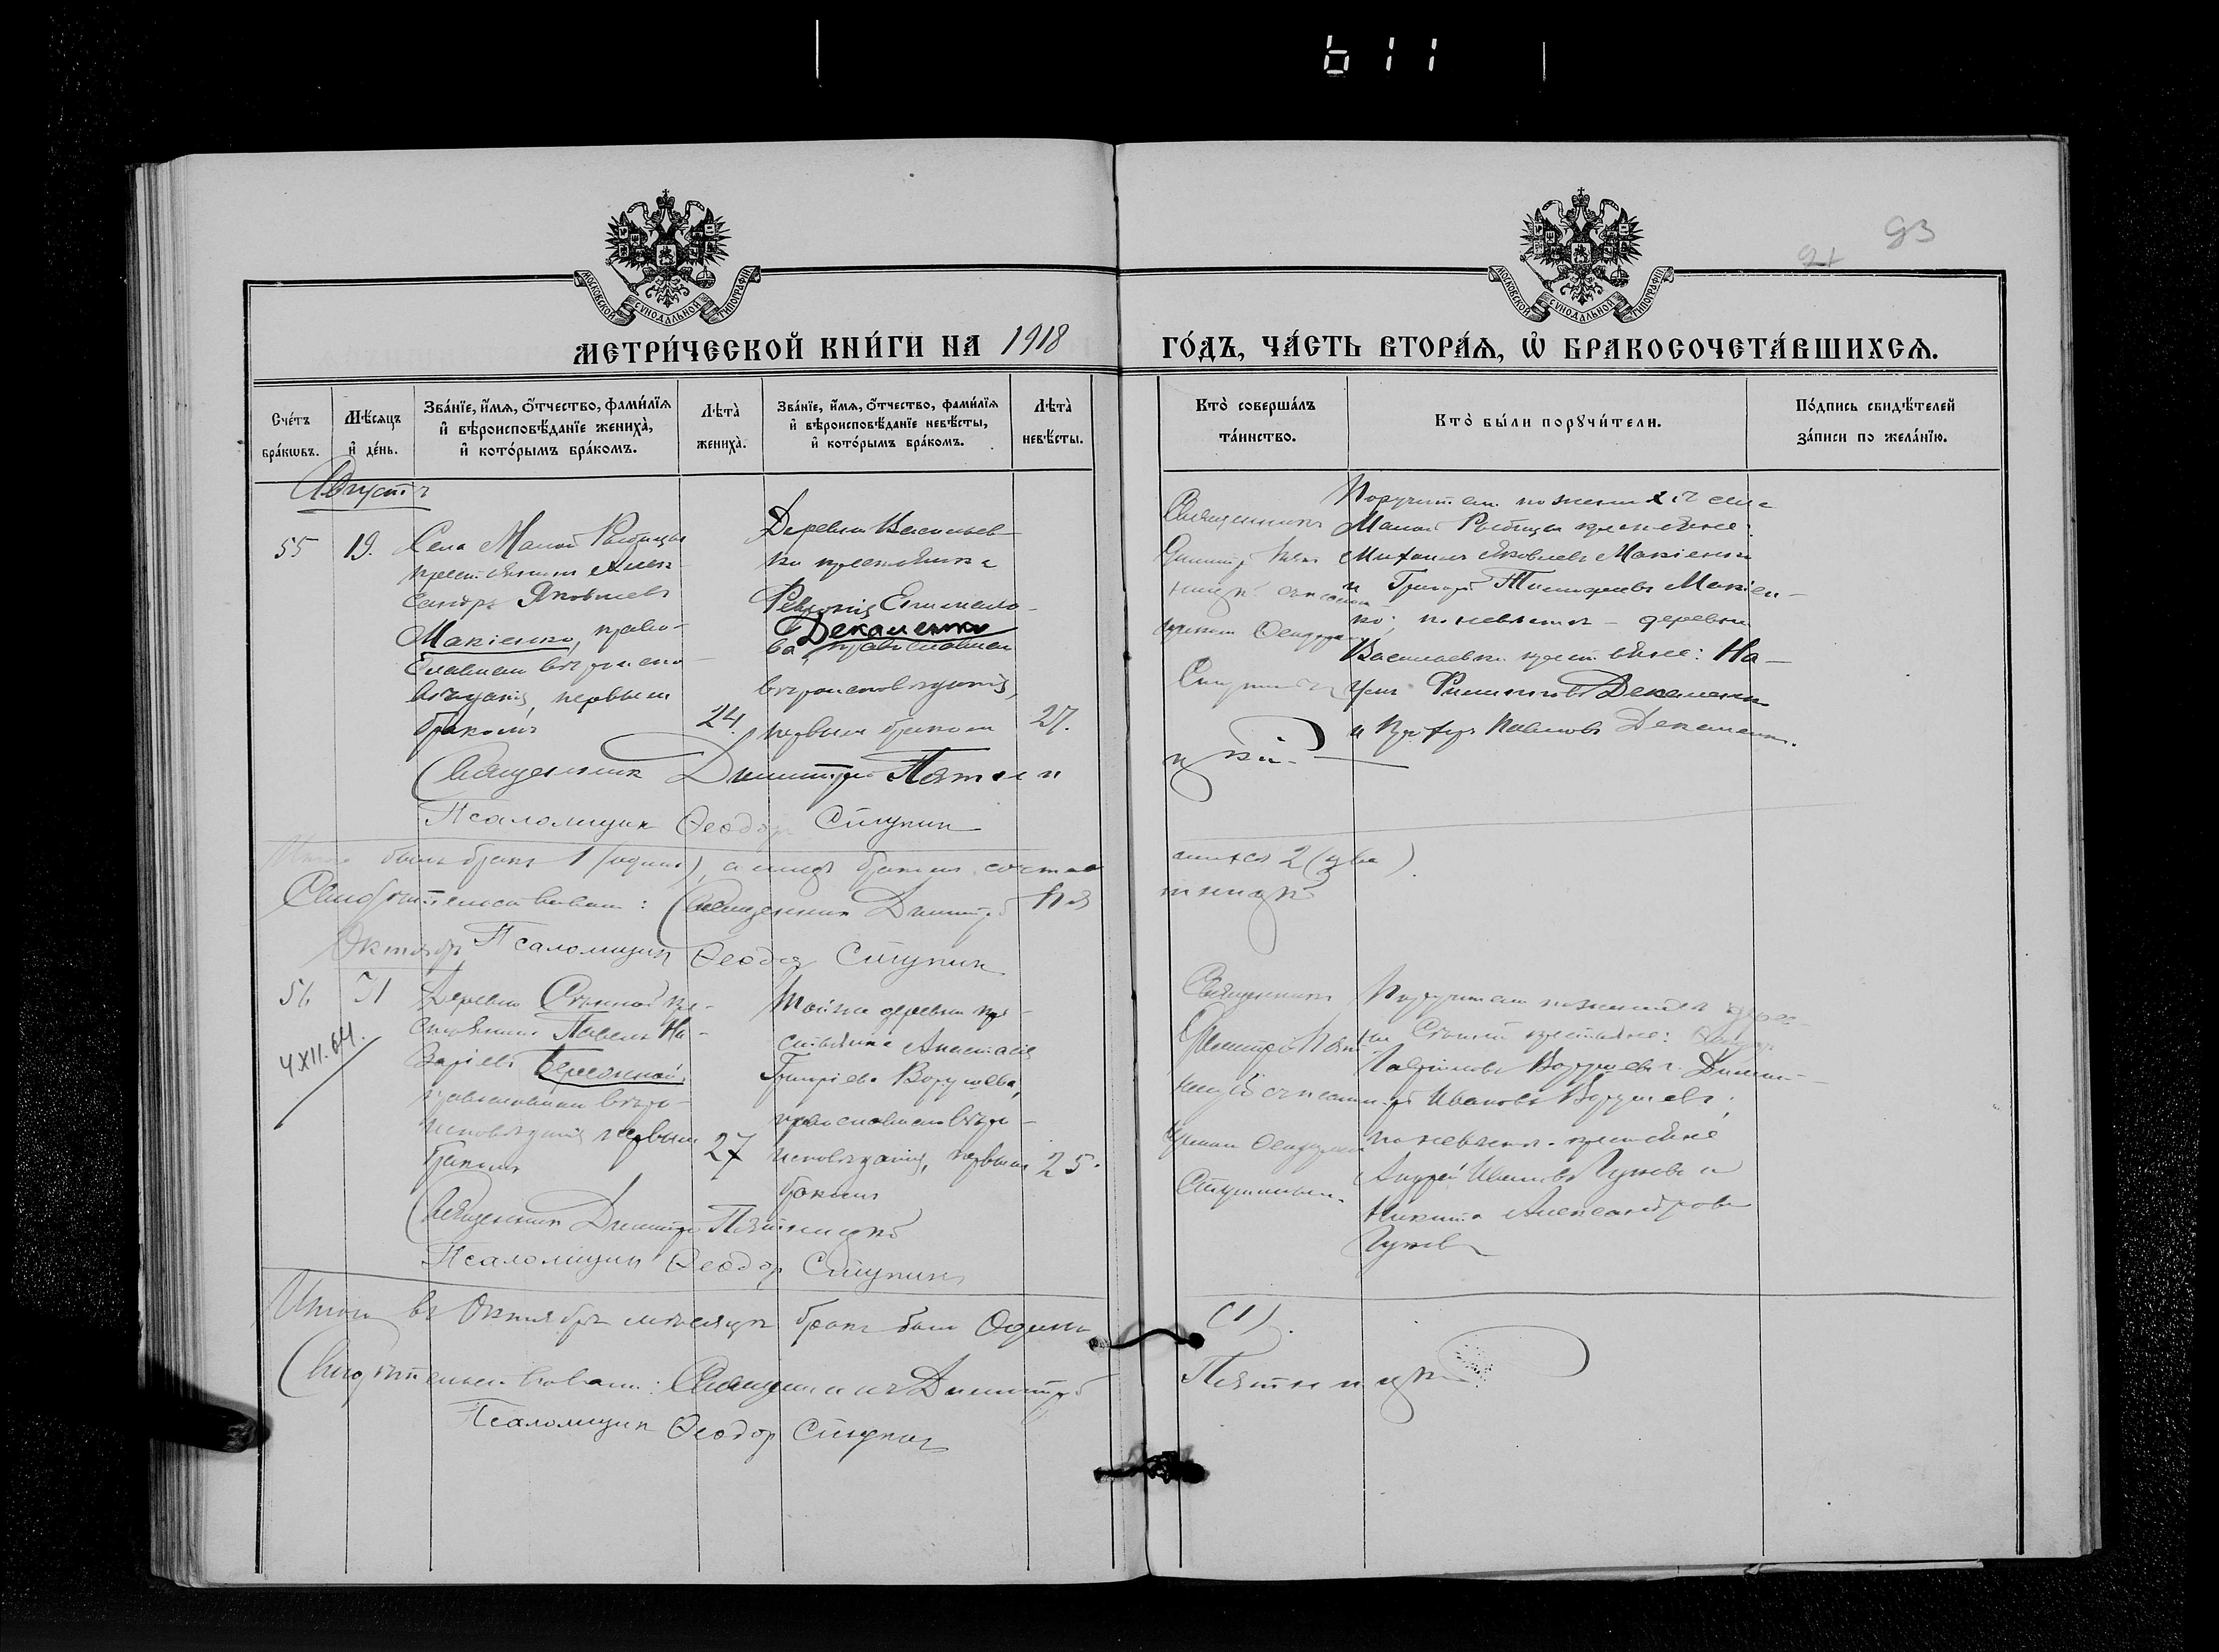 611
93
МОСКОВСКОЙ СѴНОДАЛЬНОЙ ТИПОГРАФІИ
МОСКОВСКОЙ СѴНОДАЛЬНОЙ ТИПОГРАФІИ
МЕТРИ́ЧЕСКОЙ КНИ́ГИ НА 1918 ГО́ДЪ, ЧА́СТЬ ВТОРА́Ѧ, Ѡ҆ БРАКОСОЧЕТА́ВШИХСѦ.
Сче́тъ бра́кѡвъ.
Мѣ́сѧцъ и҆ де́нь.
Зва́нїе, и҆́мѧ, ѻ҆́тчество, фами́лїѧ
и҆ вѣроисповѣ́данїе жениха̀,
и҆ кото́рымъ бра́комъ.
Лѣта̀ жениха̀.
Зва́нїе, и҆́мѧ, ѻ҆́тчество, фами́лїѧ
и҆ вѣроисповѣ́данїе невѣ́сты,
и҆ кото́рымъ бра́комъ.
Лѣта̀ невѣ́сты.
Кто̀ соверша́лъ
та́инство.
Кто̀ бы́ли порꙋчи́тели.
По́дпись свидѣ́телей
за́писи по жела́нїю.
Августъ
55
19.
Села Малой Рыбицы
крестьянинъ Алек-
сандръ Яковлевъ
Макіенко, право-
славнаго вѣроиспо-
вѣданія, первымъ
бракомъ
24.
Деревни Васильев-
ки крестьянка
Декаленко
ва православнаго
вѣроисповѣданія,
первымъ бракомъ
27.
Священникъ
Поручители по женихѣ села
Малой Рыбицы крестьяне:
Михаилъ Яковлевъ Макіенко
и Григорій Тимофеевъ Макіен-
ко; по невѣстѣ - деревни
Васильевки крестьяне: На-
умъ Филиповъ Декаленко
и Павловъ Декаленко.
Священникъ Димитрій Пятни
цкій
Псаломщикъ Ѳеодоръ Ступин
Итого былъ бракъ 1 (одинъ), а лицъ бракомъ сочетав
шихся 2 (два).
Свидѣтельствовали: Священникъ Димитрій Пя
тницкій
Псаломщикъ Ѳеодоръ Ступин
Октябрь
56
31
4 XII. 64.
Деревни Сѣнной кре-
стьянинъ Павелъ На-
заріевъ Бережной,
православнаго вѣро-
исповѣданія первымъ
бракомъ
27
Той же деревни кре-
стьянка Анастасія
Григоріева Ворушева,
православнаго вѣро-
исповѣданія, первымъ
бракомъ
25.
Священникъ
Димитрій Пят-
ницкій съ псалом-
щикомъ Ѳеодоромъ
Ступинымъ.
Поручители по женихѣ дерев-
ни Сѣнной крестьяне:
Гавриловъ Ворушевъ и Димит-
рій Ивановъ Ворушевъ;
по невѣстѣ - крестьяне
Андрей Ивановъ Гужевъ и
Никита Александровъ
Гужевъ
Священникъ Димитрій Пятницкій
Псаломщикъ Ѳеодоръ Ступин
Итого въ Октябрѣ мѣсяцѣ бракъ былъ Одинъ (1).
Свидѣтельствовали: Священникъ Димитрій Пятницкій
Псаломщикъ Ѳеодоръ Ступин